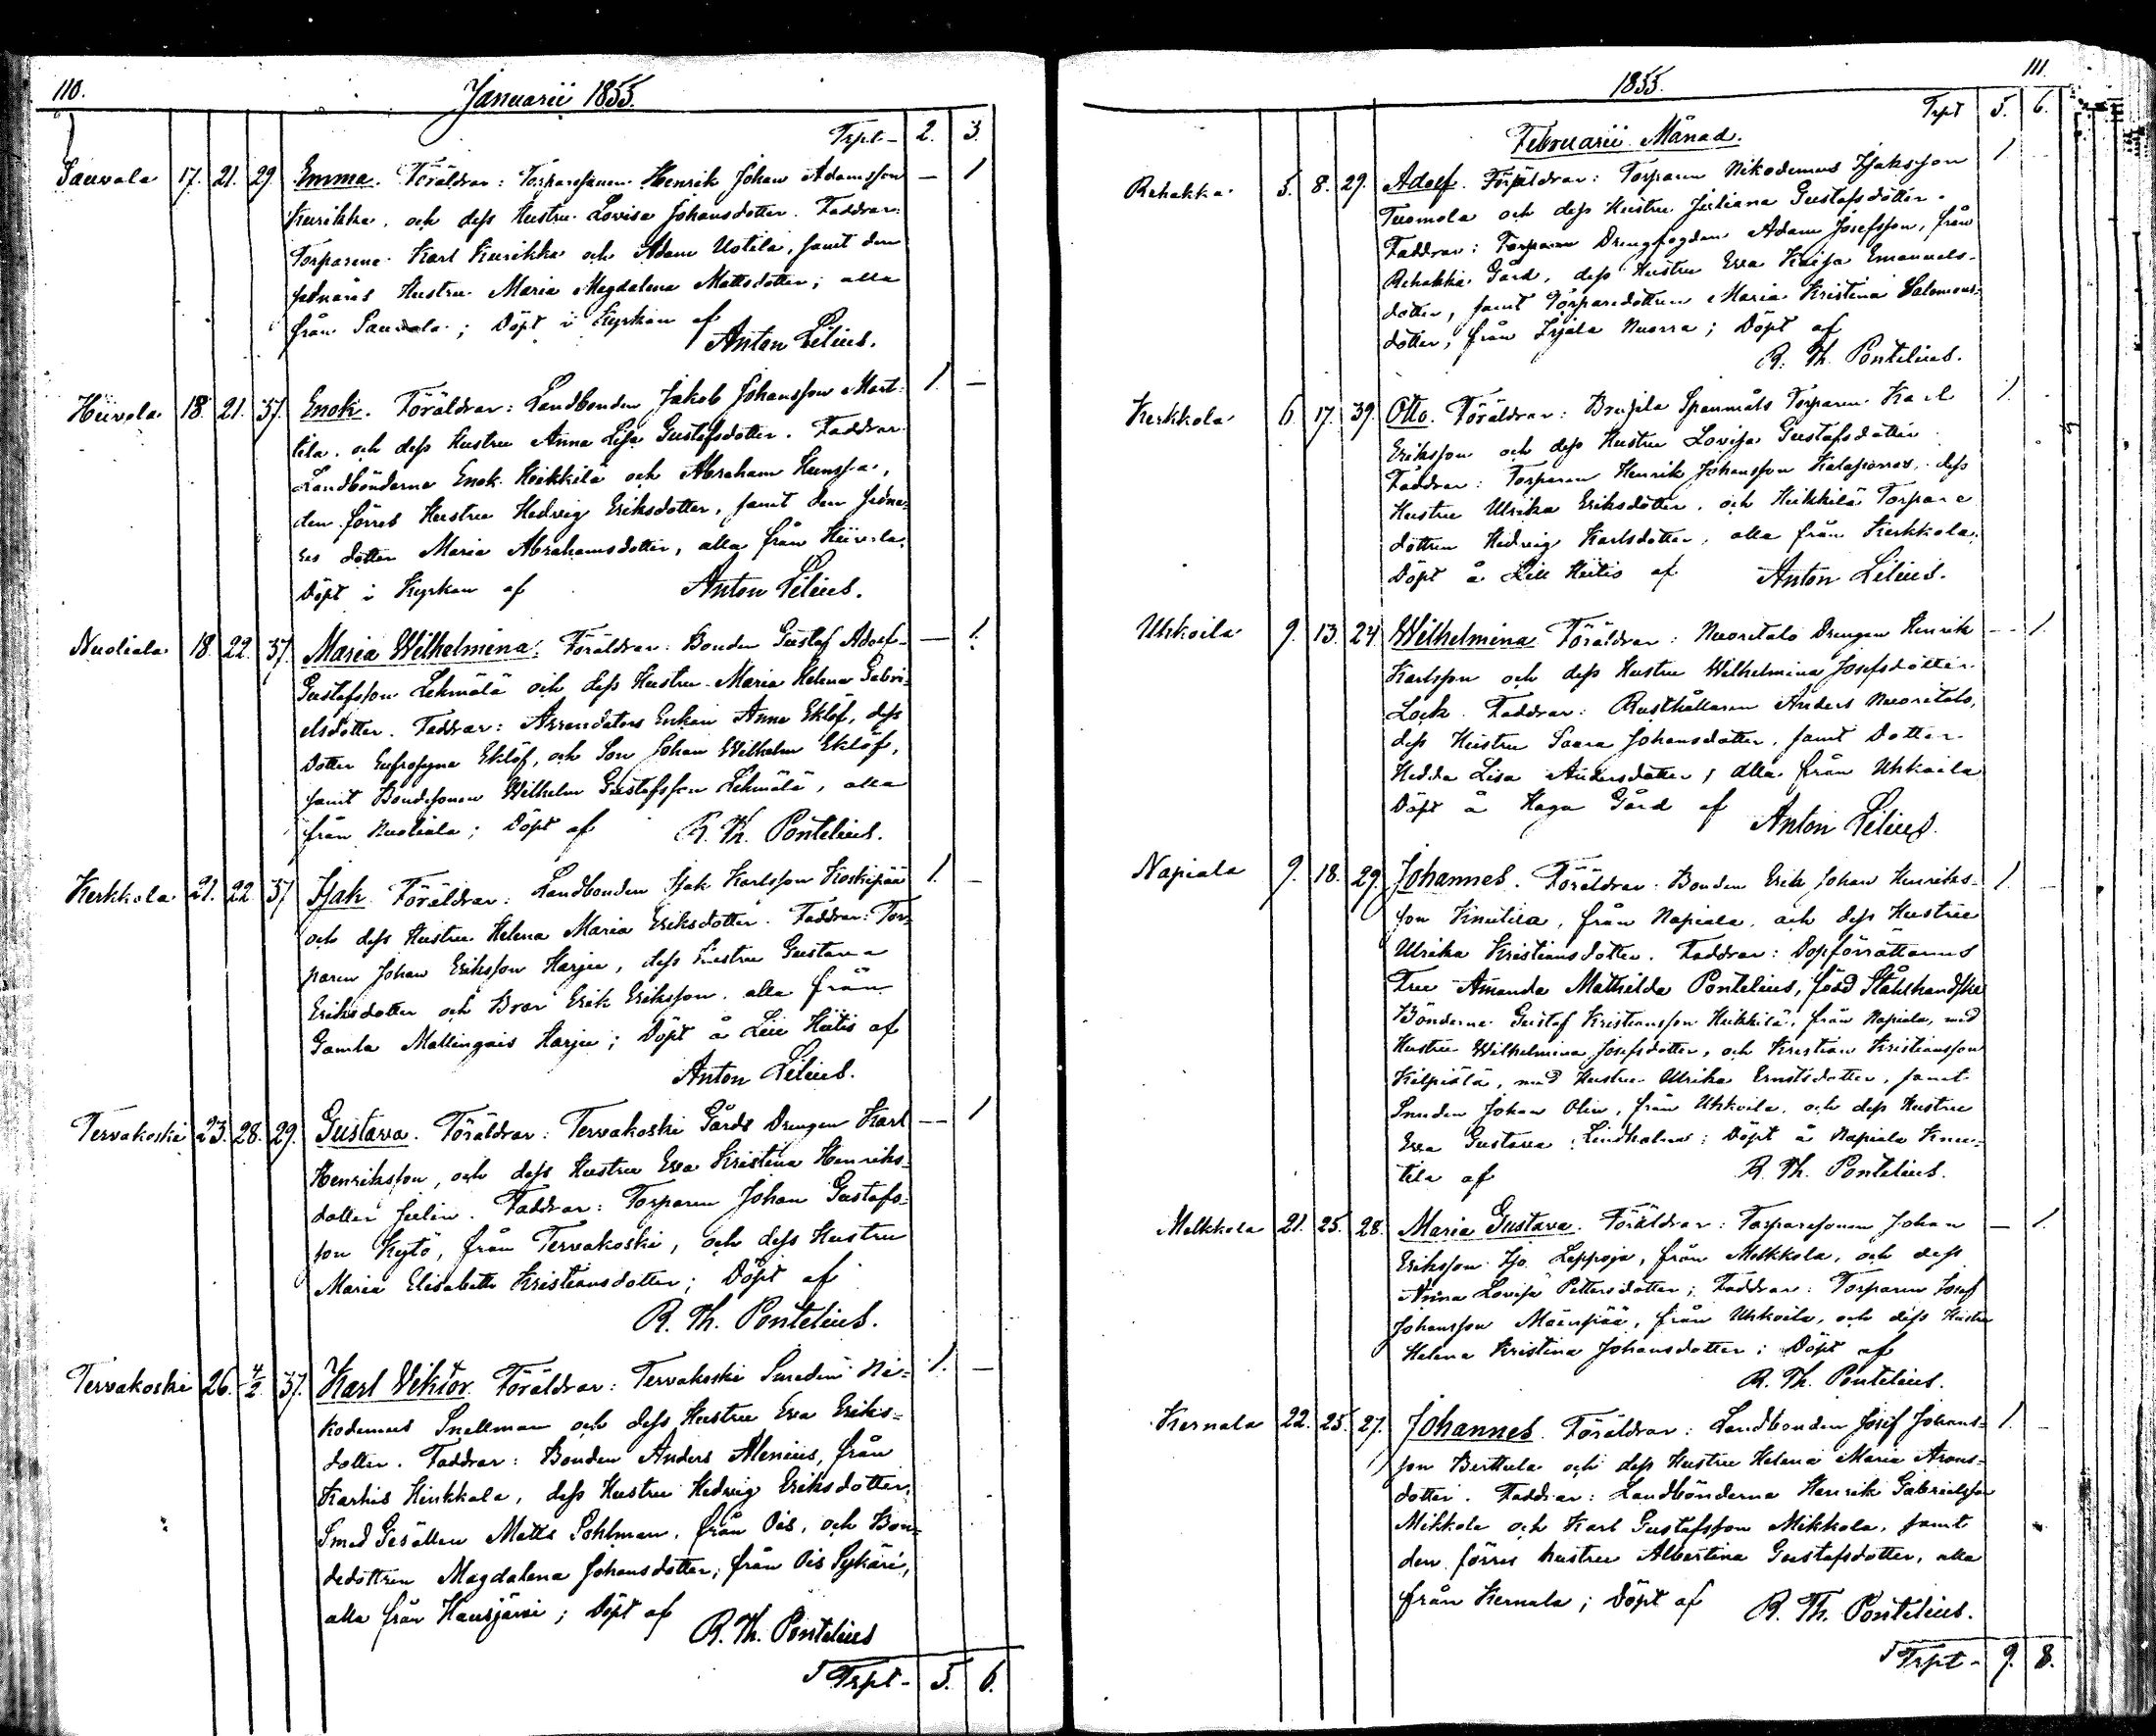 110.
Januarii 1855.
Trpt- 2. 3.
Sauvala 17. 21. 29. Emma. Föräldrar: Torparesonen Henrik Johan Adamsson — 1
Kurikka, och dess Hustru Lovisa Johansdotter. Faddrar:
Torparene Karl Kurikka och Adam Uotila, samt den
sednares Hustru Maria Magdalena Mattsdotter; alla
från Sauvala; Döpt i Kyrkan af
Anton Lilius.
Hiivola 18. 21. 37. Enok. Föräldrar: Landbonden Jakob Johansson Mart- 1. —
tila, och dess Hustru Anna Lisa Gustafsdotter. Faddrar
Landbönderna Enok Heikkilä och Abraham Hunsa,
den förres Hustru Hedvig Eriksdotter, samt den sedna-
res dotter Maria Abrahamsdotter, alla från Hiivola,
Döpt i Kyrkan af Anton Lilius.
Nuoliala 18. 22. 37. Maria Wilhelmina. Föräldrar: Bonden Gustaf Adolf — 1.
Gustafsson Lehmälä och dess Hustru Maria Helena Gabri-
elsdotter. Faddrar: Arrendators Enkan Anna Eklöf, dess
Dotter Eufrosyna Eklöf, och Son Johan Wilhelm Eklöf,
samt Bondesonen Wilhelm Gustafsson Lehmälä, alla
från Nuoliala; Döpt af R. Th. Pontelius.
Kerkkola 21. 22 37 Isak. Föräldrar: Landbonden Isak Karlsson Koskipää 1. —
och dess Hustru Helena Maria Eriksdotter. Faddrar: Tor-
paren Johan Eriksson Harju, dess Hustru Gustava
Eriksdotter och Bror Erik Eriksson, alla från
Gamla Mallingais Harju; Döpt å Lill Hiitis af
Anton Lilius.
Tervakoski 23. 28. 29. Gustava. Föräldrar: Tervakoski Gårds Drengen Karl — 1
Henriksson, och dess Hustru Eva Kristina Henriks-
dotter Julin. Faddrar: Torparen Johan Gustafs-
son Kytö, från Tervakoski, och dess Hustru
Maria Elisabeth Kristiansdotter; Döpt af
R. Th. Pontelius.
Tervakoski 26. 4/2 37. Karl Viktor. Föräldrar: Tervakoski Smeden Ni- 1. —
kodemus Snellman och dess Hustru Eva Eriks-
dotter. Faddrar: Bonden Anders Alenius, från
Karhis Hinkkala, dess Hustru Hedvig Eriksdotter,
Smed Gesällen Matts Sohlman, från Ois, och Bon-
dedottren Magdalena Johansdotter, från Ois Sykäri,
alla från Hausjärvi; Döpt af
R. Th. Pontelius
Trpt- 5. 6.
111.
1855.
Trpt 5. 6.
Februarii Månad.
Rehakka 5. 8. 29. Adolf. Föräldrar: Torparen Nikodemus Isaksson 1
Tuomola och dess Hustru Juliana Gustafsdotter.
Faddrar: Drengfogden Adam Josefsson, från
Rehakka Gård, dess Hustru Eva Kaisa Emanuels-
dotter, samt Torparedottren Maria Kristina Salomons-
dotter, från Irjala Nuorra; Döpt af
R. Th. Pontelius.
Kerkkola 6. 17. 39. Otto. Föräldrar: Brusila Spanmåls Torparen Karl 1.
Eriksson och dess Hustru Lovisa Gustafsdotter
Faddrar: Torparen Henrik Johansson dess
Hustru Ulrika Eriksdotter, och Heikkilä Torpare
dottren Hedvig Karlsdotter, alla från Kerkkola,
Döpt å Lill Hiitis af Anton Lilius.
Uhkoila 9. 13. 24. Wilhelmina Föräldrar: Nuoritalo Drengen Henrik — 1.
Karlsson och dess Hustru Wilhelmina Josefsdotter
Lock. Faddrar: Rusthållaren Anders Nuoritalo,
dess Hustru Saara Johansdotter, samt Dotter
Hedda Lisa Andersdotter, alla från Uhkoila
Döpt å Haga Gård af Anton Lilius.
Napiala 9. 18. 29. Johannes. Föräldrar: Bonden Erik Johan Henriks- 1.
son Knutila, från Napiala, och dess Hustru
Ulrika Kristiansdotter. Faddrar: Dopförrättarens
Fru Amanda Mathilda Pontelius, född Stålhandske
Bönderna Gustaf Kristiansson Heikkilä, från Napiala, med
Hustru Wilhelmina Josefsdotter, och Kristian Kristiansson
Kilpiälä, med Hustru Ulrika Ernstsdotter, samt
Smeden Johan Olin, från Uhkoila, och dess Hustru
Eva Gustava Lindholm; Döpt å Napiala Knu-
tila af R. Th. Pontelius.
Melkkola 21. 25. 28. Maria Gustava. Föräldrar: Torparesonen Johan — 1.
Eriksson Iso Leppoja, från Melkkola, och dess
Anna Lovisa Pettersdotter; Faddrar: Torparen Josef
Johansson Mäenpää, från Uhkoila, och dess Hustru
Helena Kristina Johansdotter; Döpt af
R. Th. Pontelius.
Kernala 22. 25. 27. Johannes. Föräldrar: Landbonden Josef Johans- 1.
son Berttula och dess Hustru Helena Maria Arons-
dotter. Faddrar: Landbönderna Henrik Gabrielsson
Mikkola och Karl Gustafsson Mikkola, samt
den förres hustru Albertina Gustafsdotter, alla
från Kernala; Döpt af R. Th. Pontelius.
Trpt- 9. 8.